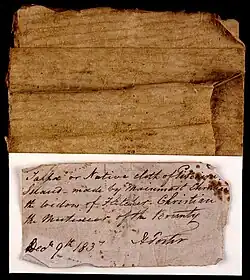 Tappa or Native cloth of Pitcairn
Island made by Mainmast
the widow of Fletcher Christian
the Mutineer of the Bounty
Decr 9th 1837 Foster